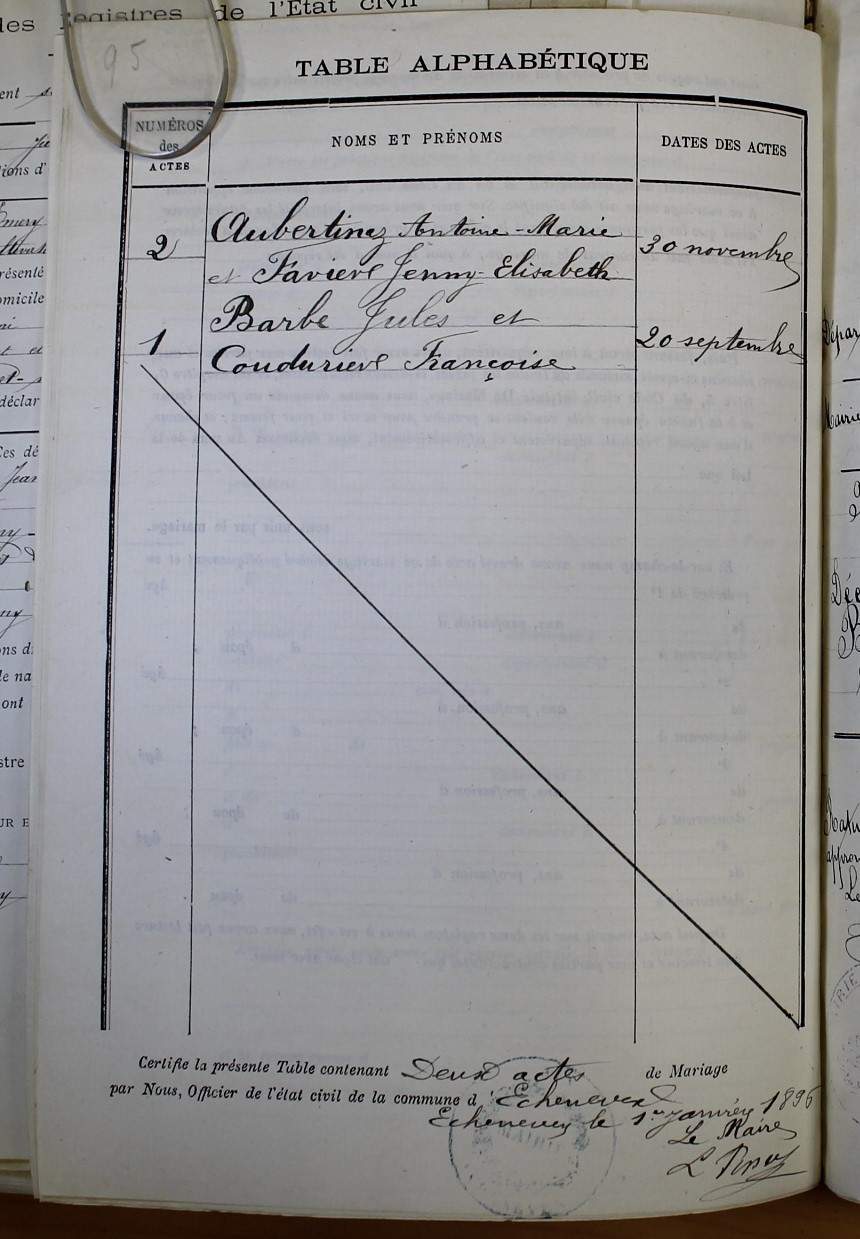 Registres de l'Etat civil
95
TABLE ALPHABÉTIQUE
NUMÉROS
des
ACTES
NOMS ET PRÉNOMS
DATES DES ACTES
2
Aubertinaz Antoine-Marie
et Favier Jenny-Elisabeth
30 novembre
Barbe Jules et
1
Coudurier Françoise
20 septembre
Certifie la présente Table contenant Deux actes de Mariage
par Nous, Officier de l'état civil de la commune d'Echenevex
Echenevex le 1er janvier 1896
Le Maire